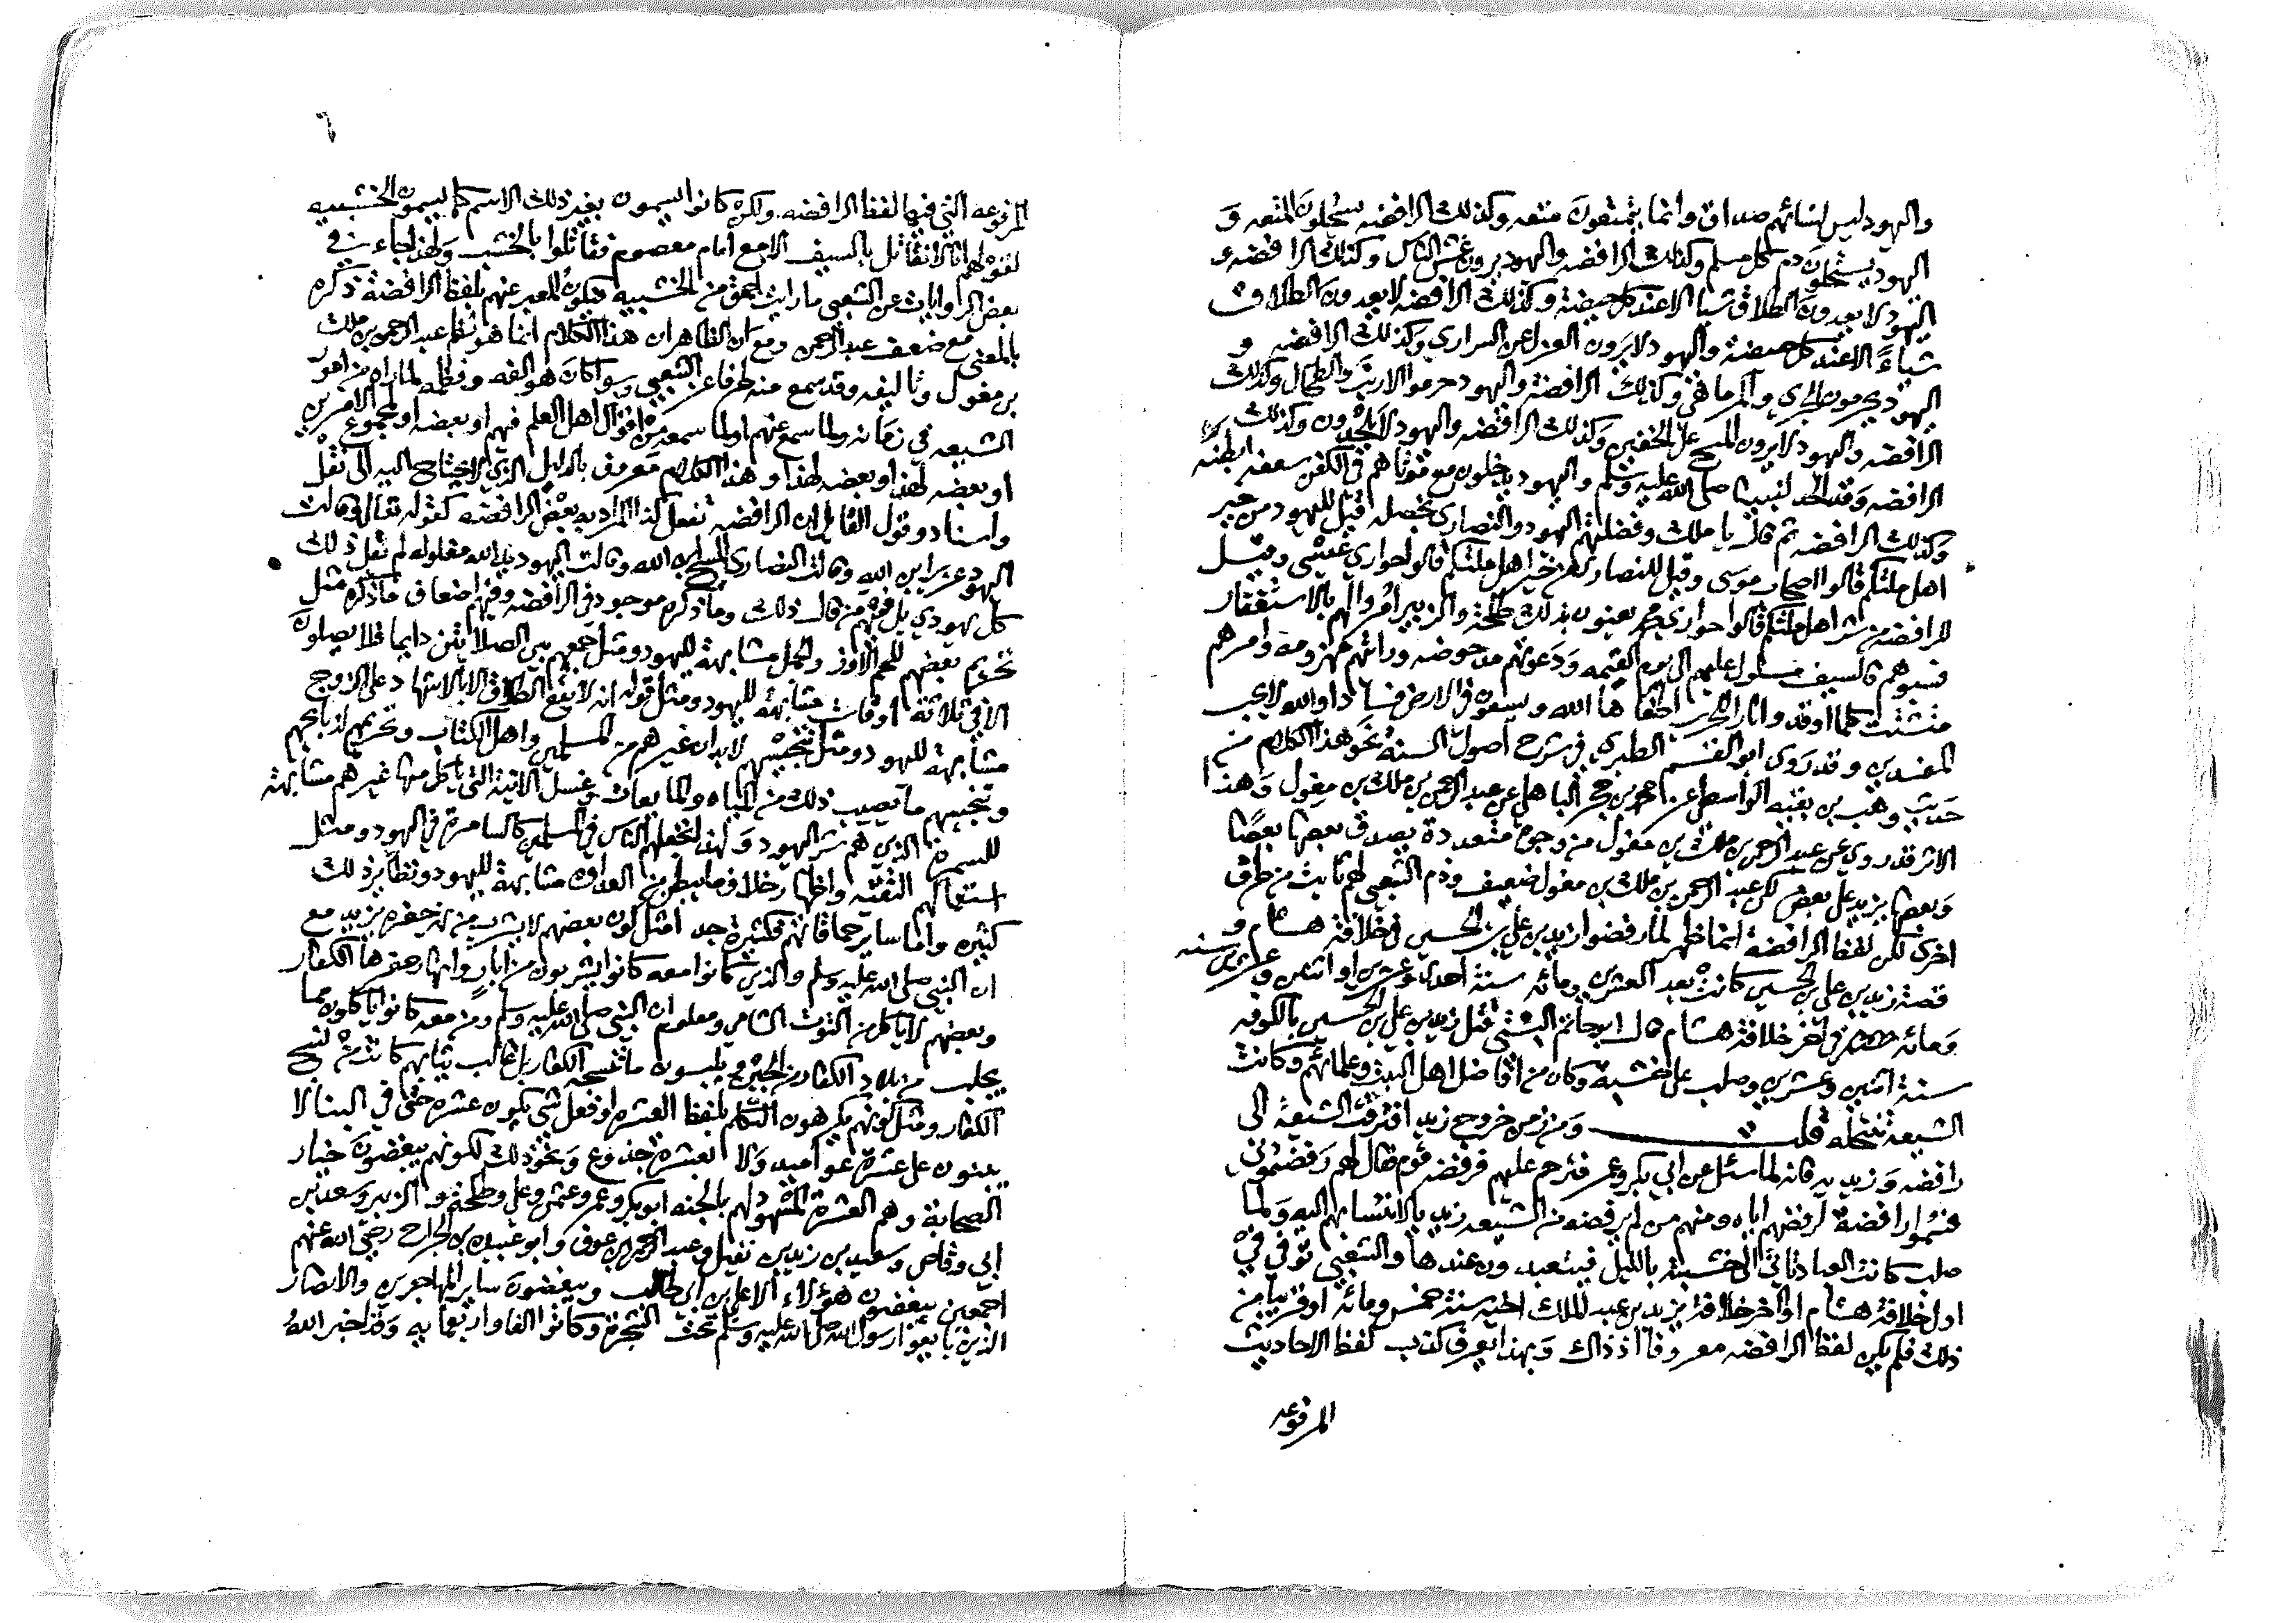 واليهود ليس لنسائهم صداق وانما يتمتعون متعه وكذلك الرافضه يستحلون المتعه و
اليهود يستحلون دم كل مسلم وكذلك الرافضه واليهود يرون غش الناس وكذلك الرافضه و
اليهود لا يعدون الطلاق شيا الا عند كل حيضة وكذلك الرافضه لا يعدون الطلاق
شياءً الا عند كل حيضة واليهود لا يرون العزل عن السراري وكذلك الرافضه و
اليهود يحرمون الجري والمرماهي وكذلك الرافضة واليهود حرموا الارنب والطحال وكذلك
الرافضه واليهود لا يرون المسح على الخفين وكذلك الرافضه واليهود لا يلحدون وكذلك
الرافضه وقد الحد لنبينا صلى الله عليه وسلم واليهود يدخلون مع موتاهم في الكفن سعفه رطبه
وكذلك الرافضه ثم قال يا ملك وفضلتهم اليهود والنصارى بخصله قيل لليهود من خير
اهل ملتكم قالوا اصحاب موسى وقيل للنصارى من خير اهل ملتكم قالوا حواري عيسى وقيل
للرافضه من شر اهل ملتكم قالوا حواري محمد يعنون بذلك طلحة والزبير امروا لهم بالاستغفار
فسبوهم فالسيف مسلول عليهم الى يوم القيمه ودعوتهم مدحوضه ورايتهم مهزومه وامرهم
متشتت كلما اوقدوا نارا للحرب اطفاها الله ويسعون في الارض فسادا والله لا يحب
المفسدين وقد روى ابو القسم الطبري في شرح اصول السنة نحو هذا الكلام من
حديث وهب بن بقيه الواسطي عن محمد بن حجر الباهلي عن عبد الرحمن بن ملك بن مغول وهذا
الاثر قد روي عن عبد الرحمن بن ملك بن مغول من وجوه متعددة يصدق بعضها بعضًا
وبعضها يزيد على بعض لكن عبد الرحمن بن ملك بن مغول ضعيف وذم الشعبي لهم ثابت من طرق
اخرى لكن لفظ الرافضة انما ظهر لما رفضوا زيد بن علي بن الحسين في خلافة هشام و
قصة زيد بن علي بن الحسين كانت بعد العشرين ومائه سنة احدى وعشرين او اثنين وعشرين سنه
ومائه في اخر خلافة هشام قال ابو حاتم البستي قتل زيد بن علي بن الحسين بالكوفه
سنة اثنين وعشرين وصلب على خشبة وكان من افاضل اهل البيت وعلمائهم وكانت
الشيعة تنتحله قلت ومن زمن خروج زيد افترقت الشيعة الى
رافضه وزيديه فانه لما سئل عن ابي بكر وعمر فترحم عليهم فرفضه قوم فقال لهم رفضتموني
فسموا رافضة لرفضهم اياه ومنهم من لم يرفضه من الشيعه زيديا لانتسابهم اليه ولما
صلب كانت العباد تاتي الى خشبة بالليل فيتعبدون عندها والشعبي توفي في
اول خلافة هشام او اخر خلافة يزيد بن عبد الملك اخيه سنة خمس ومائه او قريبا من
ذلك فلم يكن لفظ الرافضه معروفا اذ ذاك وبهذا يعرف كذب لفظ الاحاديث
المرفوعه
٦
المرفوعه التي فيها لفظ الرافضه ولكن كانوا يسمون بغير ذلك الاسم كما يسمون الخشبيه
لقولهم انا لا نقاتل بالسيف الا مع امام معصوم فقاتلوا بالخشب ولهذا جاء في
بعض الروايات عن الشعبي ما رايت احمق من الخشبيه فيكون المعبر عنهم بلفظ الرافضة ذكره
بالمعنى مع ضعف عبد الرحمن ومع ان الظاهر ان هذا الكلام انما هو نظم عبد الرحمن بن ملك
بن مغول وتاليفه وقد سمع منه طرفا عن الشعبي وسوا كان هو الفه ونظمه لما راه من امور
الشيعه في زمانه ولما سمع عنهم او لما سمعه من اقوال اهل العلم فيهم او بعضه او مجموع الامرين
او بعضه لهذا وبعضه لهذا وهذا الكلام معروف بالدليل الذي لا يحتاج اليه الى نقل
واسناد وقول القايل ان الرافضه تفعل كذا المراد به بعض الرافضه كقوله تعالى وقالت
اليهود عزير ابن الله وقالت النصارى المسيح ابن الله وقالت اليهود يد الله مغلوله لم يقل ذلك
كل يهودي بل فيهم من قال ذلك وما ذكره موجود في الرافضه وفيهم اضعاف ما ذكره مثل
تحريم بعضهم للحم الاوز والجمل مشابهة لليهود ومثل جمعهم بين الصلاتين دايما فلا يصلون
الا في ثلاثة اوقات مشابهة لليهود ومثل قولهم انه لا يقع الطلاق الا بالاشهاد على الزوج
مشابهة لليهود ومثل تنجيسهم لابدان غيرهم من المسلمين واهل الكتاب وتحريمهم لذبايحهم
وتنجيسهم ما يصيب ذلك من المياه والمايعات وغسل الانية التي ياكل منها غيرهم مشابهة
للسمرة الذين هم شر اليهود ولهذا يجعلهم الناس في المسلمين كالسامرة في اليهود ومثل
استعمالهم التقيه واظهار خلاف ما يبطن من العداوه مشابهة لليهود ونظاير ذلك
كثيره واما ساير حماقاتهم فكثيرة جدا مثل كون بعضهم لا يشرب من نهر حفره يزيد مع
ان النبي صلى الله عليه وسلم والذين كانوا معه كانوا يشربون من ابار وانهار حفرها الكفار
وبعضهم لا ياكل من التوت الشامي ومعلوم ان النبي صلى الله عليه وسلم ومن معه كانوا ياكلون مما
يجلب من بلاد الكفار من الجبن ويلبسون ما تنسجه الكفار بل غالب ثيابهم كانت من نسج
الكفار ومثل كونهم يكرهون التكلم بلفظ العشره او فعل شي يكون عشره حتى في البنا لا
يبنون على عشرة عواميد ولا بعشرة جذوع ونحو ذلك لكونهم يبغضون خيار
الصحابة وهم العشرة المشهود لهم بالجنه ابو بكر وعمر وعثمن وعلي وطلحة والزبير وسعد بن
ابي وقاص وسعيد بن زيد بن نفيل وعبد الرحمن بن عوف وابو عبيده بن الجراح رضي الله عنهم
اجمعين يبغضون هؤلاء الا علي بن ابي طالب ويبغضون ساير المهاجرين والانصار
الذين بايعوا رسول الله صلى الله عليه وسلم تحت الشجرة وكانوا الفا واربعمايه وقد اخبر الله